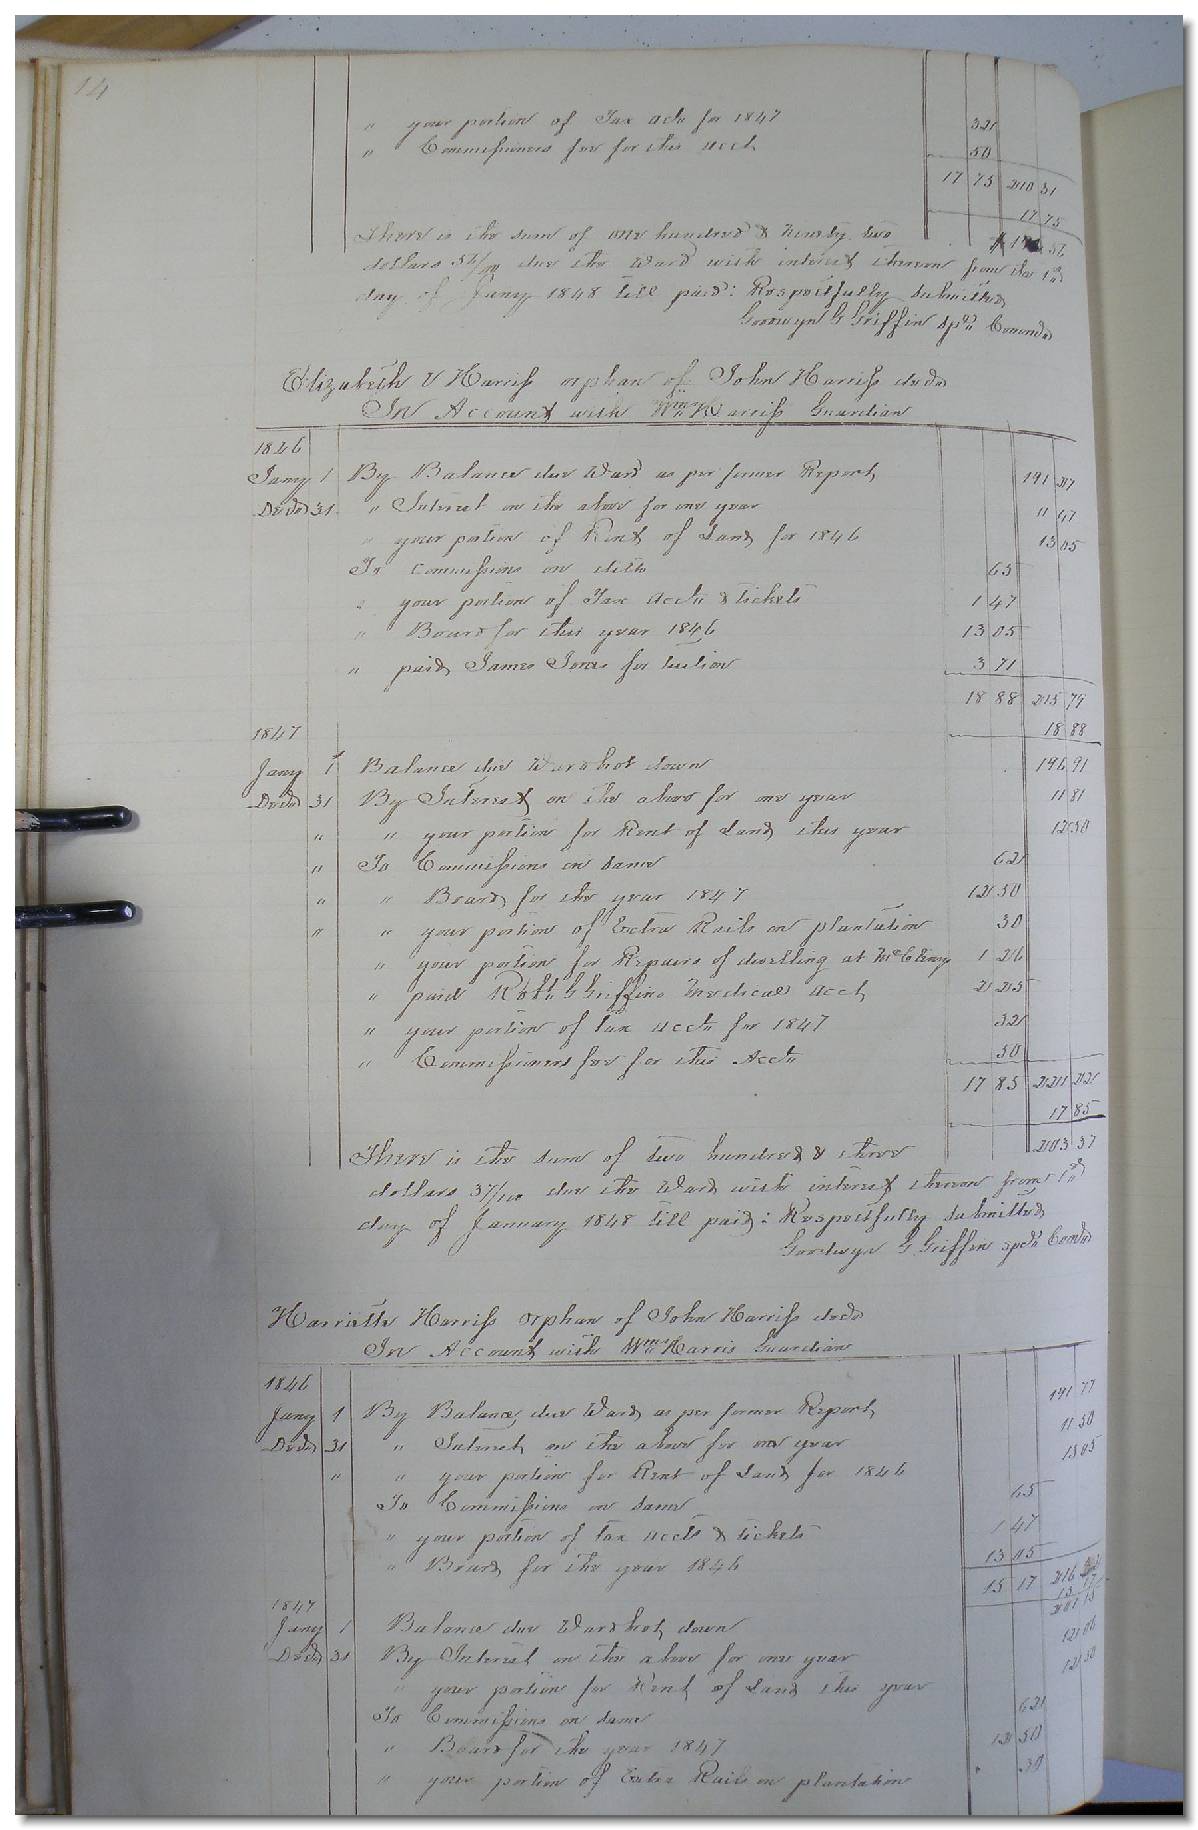 14
" your portion of Tax acts for 1847 32
" Commissioners fee for this acct 50
17 75 210 31
17 75
$ 192 56
There is the sum of one hundred & ninety two
dollars 56/100 due the Ward with interest thereon from the 1st
day of Jany 1848 till paid: Respectfully submitted
Goodwyn G Griffin Spcl Commdr
Elizabeth V Harriss orphan of John Harriss decd
In Account with Wm H Harriss Guardian
1846
Jany 1 By Balance due Ward as per former Report 191 27
Decdr 31 " Interest on the above for one year 11 47
" your portion of Rent of Land for 1846 13 05
To Commissions on ditto 65
" your portion of Tax Accts & tickets 1 47
" Board for this year 1846 13 05
" paid James Jones for tuition 3 71
18 88 215 79
1847 18 88
Jany 1 Balance due Ward bot down 196 91
Decdr 31 By Interest on the above for one year 11 81
" " your portion for Rent of Land this year 12 50
" To Commissions on same 62
" " Board for the year 1847 12 50
" " your portion of Extra Rails on plantation 30
" your portion for Repairs of dwelling at 1 26
" paid Robt G Griffins Medical acct 2 25
" your portion of tax accts for 1847 32
" Commissioners fee for this Acct 50
17 85 221 22
17 85
203 37
There is the sum of two hundred & three
dollars 37/100 due the Ward with interest thereon from 1st
day of January 1848 till paid: Respectfully submitted
Goodwyn G Griffin spcl Comdr
Harriette Harriss orphan of John Harriss decd
In Account with Wm H Harris Guardian
1846
Jany 1 By Balance due Ward as per former Report 191 77
Decdr 31 " Interest on the above for one year 11 50
" " your portion for Rent of Land for 1846 13 05
To Commissions on same 65
" your portion of tax accts & tickets 1 47
" Board for the year 1846 13 05
15 17 216
15 17
1847 201 15
Jany 1 Balance due Ward bot down
Decdr 31 By Interest on the above for one year 12 06
" your portion for Rent of Land this year 12 50
To Commissions on same 62
" Board for the year 1847 12 50
" your portion of Extra Rails on plantation 30